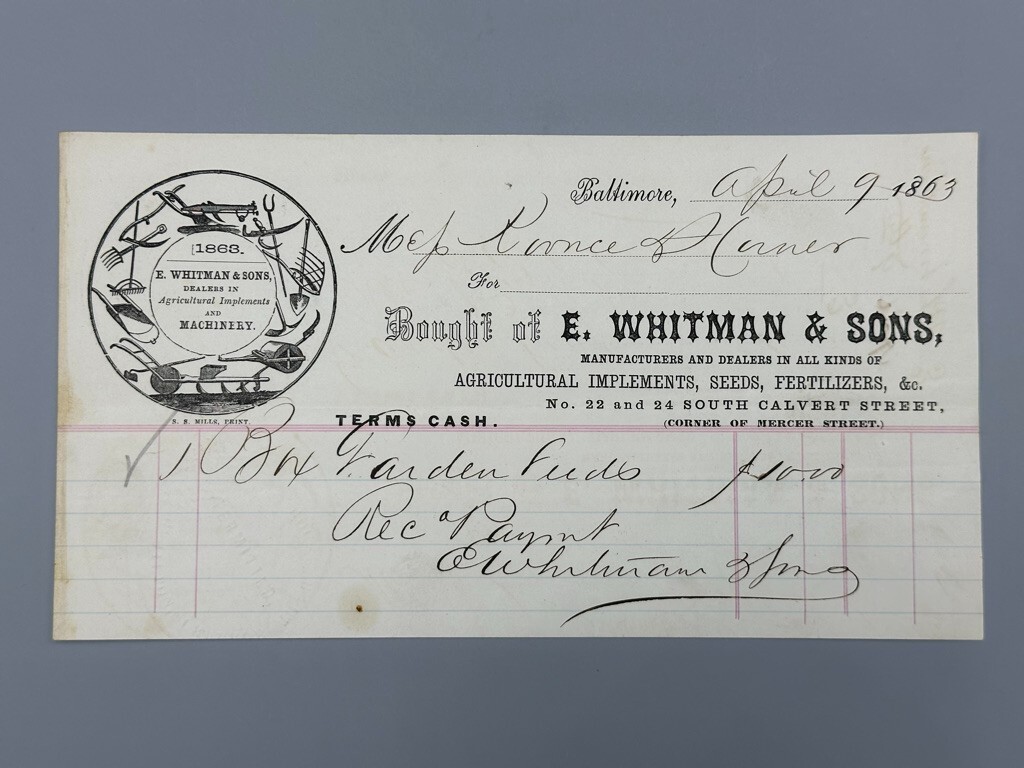 Baltimore, April 9 1863
Mess Koonce & Corner
For
Bought of E. WHITMAN & SONS,
MANUFACTURERS AND DEALERS IN ALL KINDS OF
AGRICULTURAL IMPLEMENTS, SEEDS, FERTILIZERS, &c.
No. 22 and 24 SOUTH CALVERT STREET,
TERMS CASH. (CORNER OF MERCER STREET.)
1863.
E. WHITMAN & SONS,
DEALERS IN
Agricultural Implements
AND
MACHINERY.
S. S. MILLS, PRINT.
1 Box Garden Seeds $10.00
Rec d Paymt
E Whitman & Sons